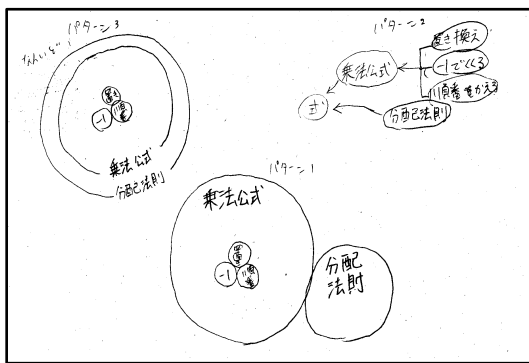 パターン3
なんいど
置き
-1
順番
乗法公式
分配法則
パターン2
置き換え
-1でくくる
順番をかえる
乗法公式
式
分配法則
パターン1
乗法公式
置き
-1
順番
分配
法則